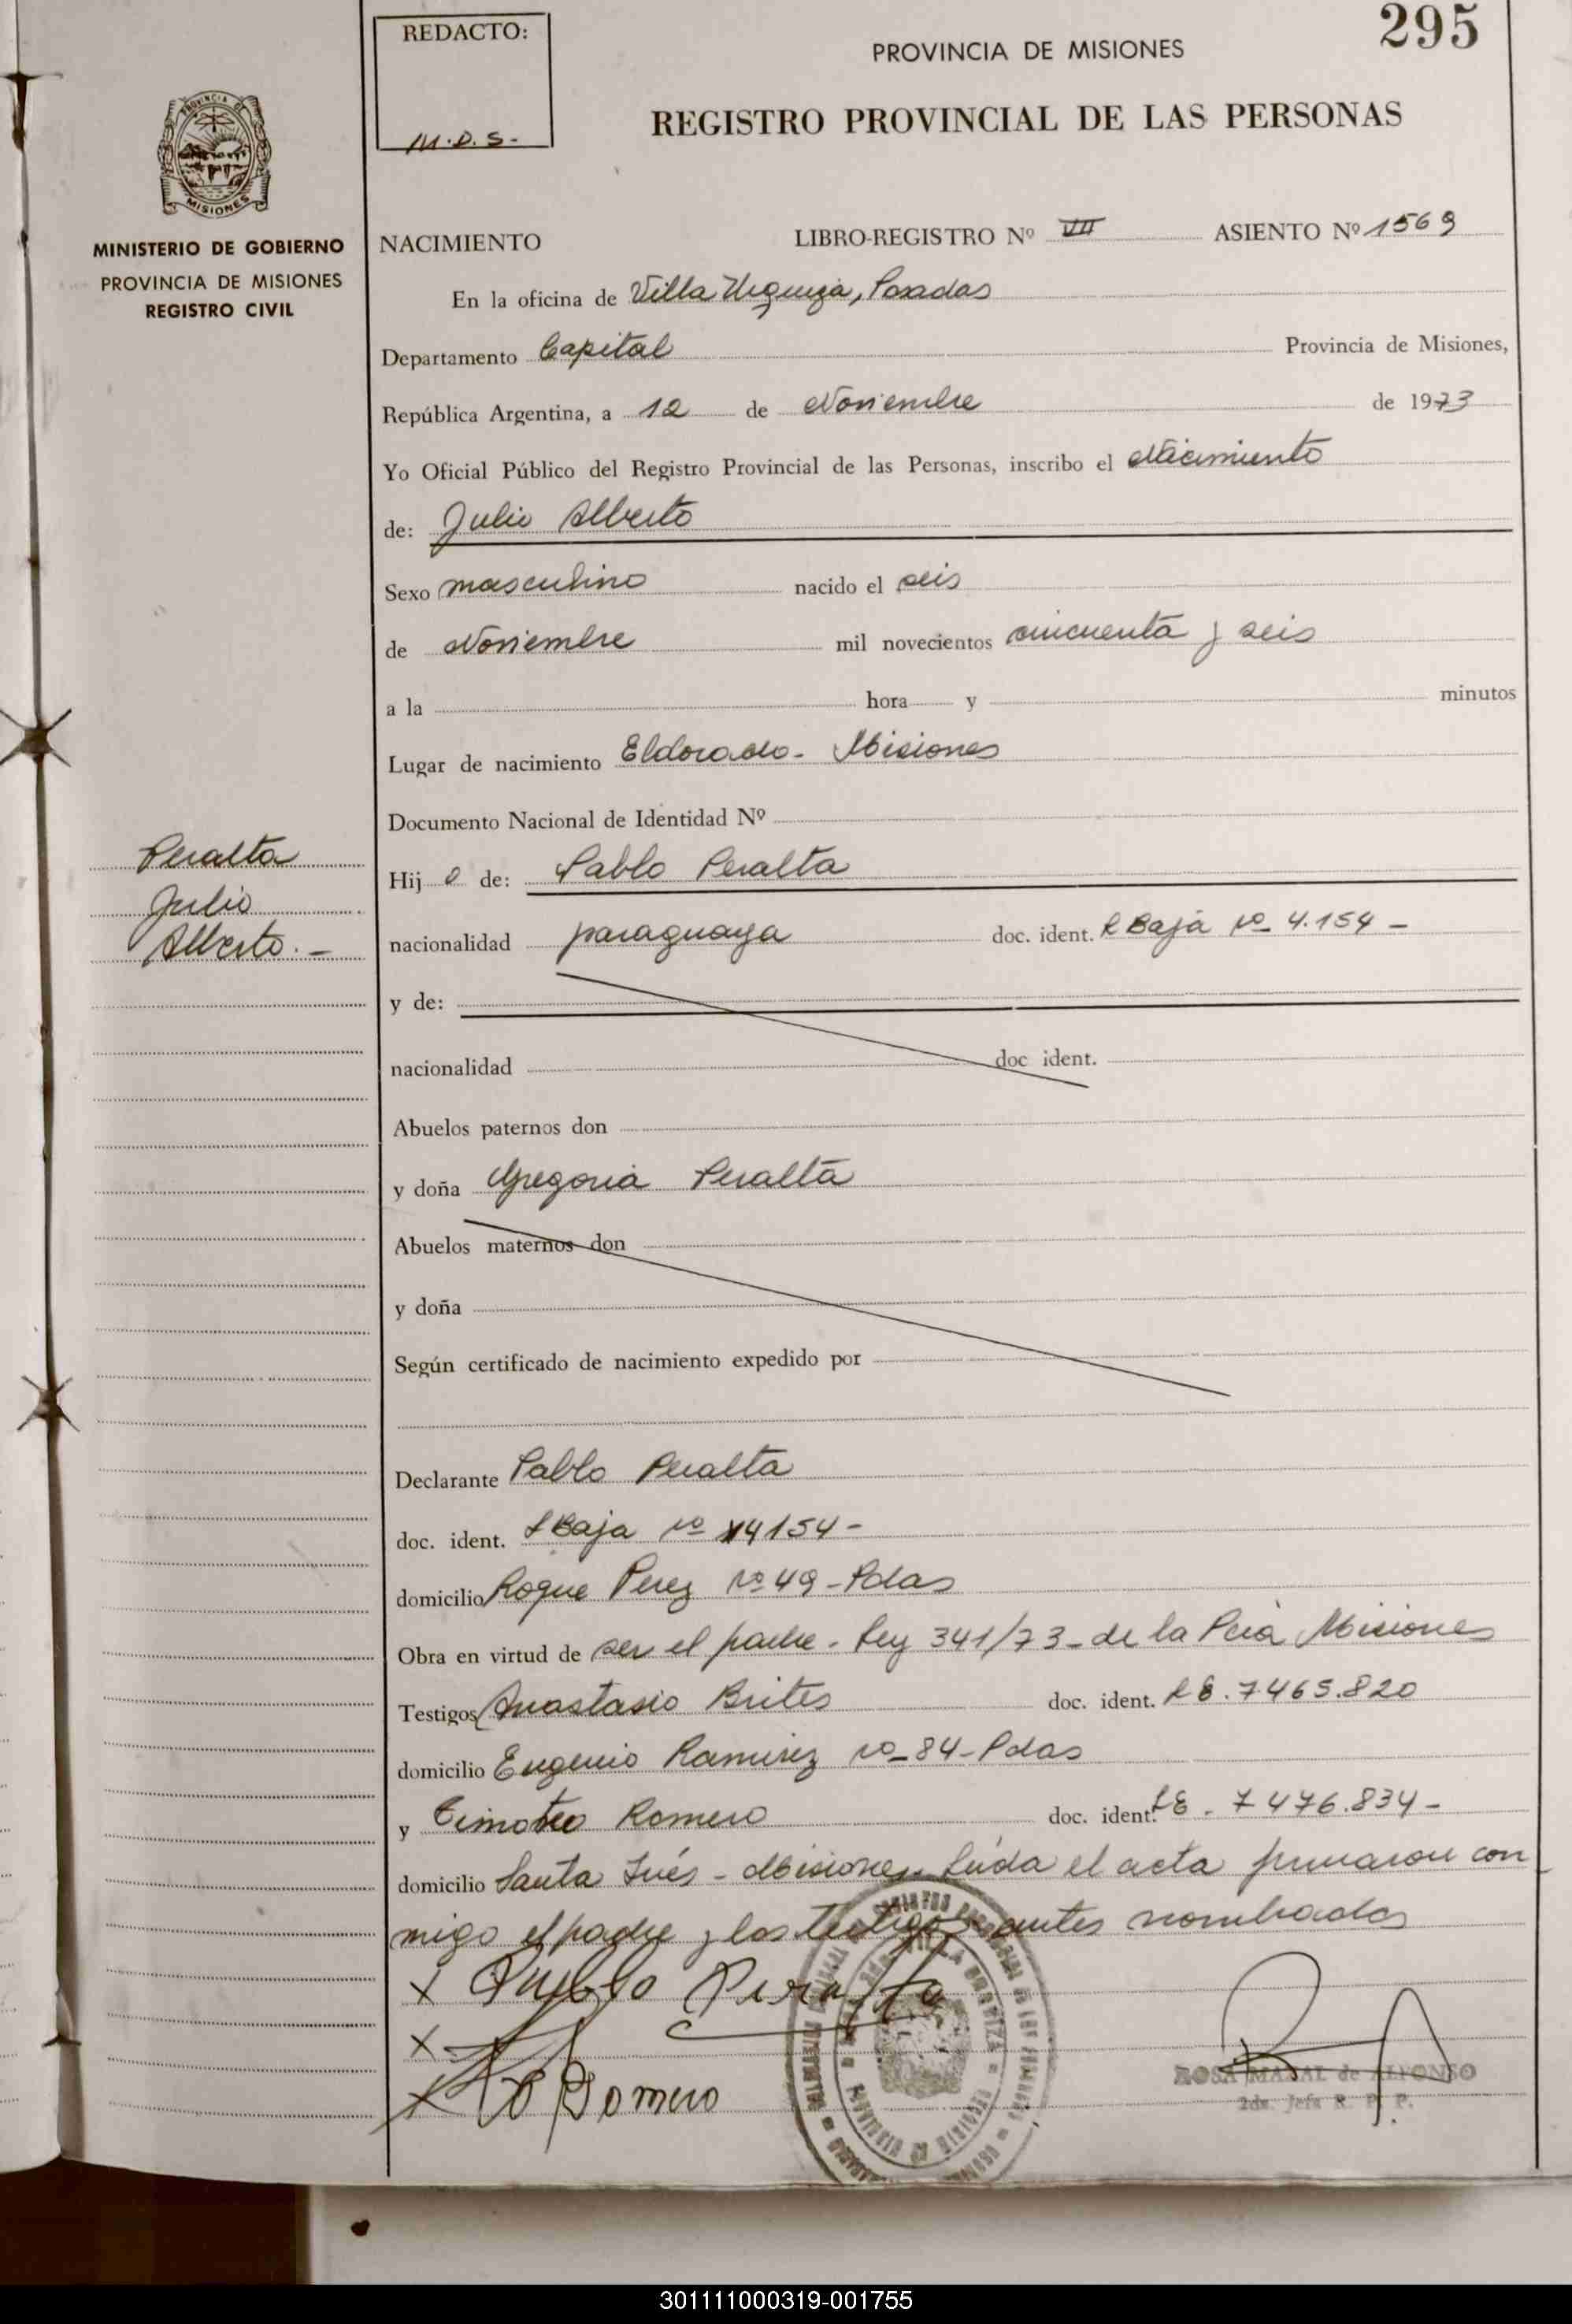 295
REDACTO:
M.D.S.-
PROVINCIA DE MISIONES
REGISTRO PROVINCIAL DE LAS PERSONAS
PROVINCIA DE
MISIONES
MINISTERIO DE GOBIERNO
PROVINCIA DE MISIONES
REGISTRO CIVIL
NACIMIENTO LIBRO-REGISTRO Nº VII ASIENTO Nº 1569
En la oficina de Villa Urquiza, Posadas
Departamento Capital Provincia de Misiones,
República Argentina, a 12 de Noviembre de 1973
Yo Oficial Público del Registro Provincial de las Personas, inscribo el Nacimiento
de: Julio Alberto
Sexo masculino nacido el seis
de Noviembre mil novecientos cincuenta y seis
a la hora y minutos
Lugar de nacimiento Eldorado - Misiones
Documento Nacional de Identidad Nº
Peralta
Julio
Alberto.-
Hijo de: Pablo Peralta
nacionalidad paraguaya doc. ident. R Baja Nº 4.154 -
y de:
nacionalidad doc ident.
Abuelos paternos don
y doña Gregoria Peralta
Abuelos maternos don
y doña
Según certificado de nacimiento expedido por
Declarante Pablo Peralta
doc. ident. Baja Nº 4154-
domicilio Roque Perez Nº 49-Pdas
Obra en virtud de ser el padre - Ley 341/73 - de la Pcia Misiones
Testigos Anastasio Brites doc. ident. 7465.820
domicilio Eugenio Ramirez Nº 84-Pdas
y Timoteo Romero doc. ident. LE. 7476.834-
domicilio Santa Inés - Misiones. Leída el acta firmaron con
migo el padre y los testigos antes nombrados
x Pablo Peralta
x
x Romero
VILLA URQUIZA
PROVINCIA DE MISIONES
ROSA MAÑAL de ALFONSO
2da. Jefa R. P. P.
301111000319-001755